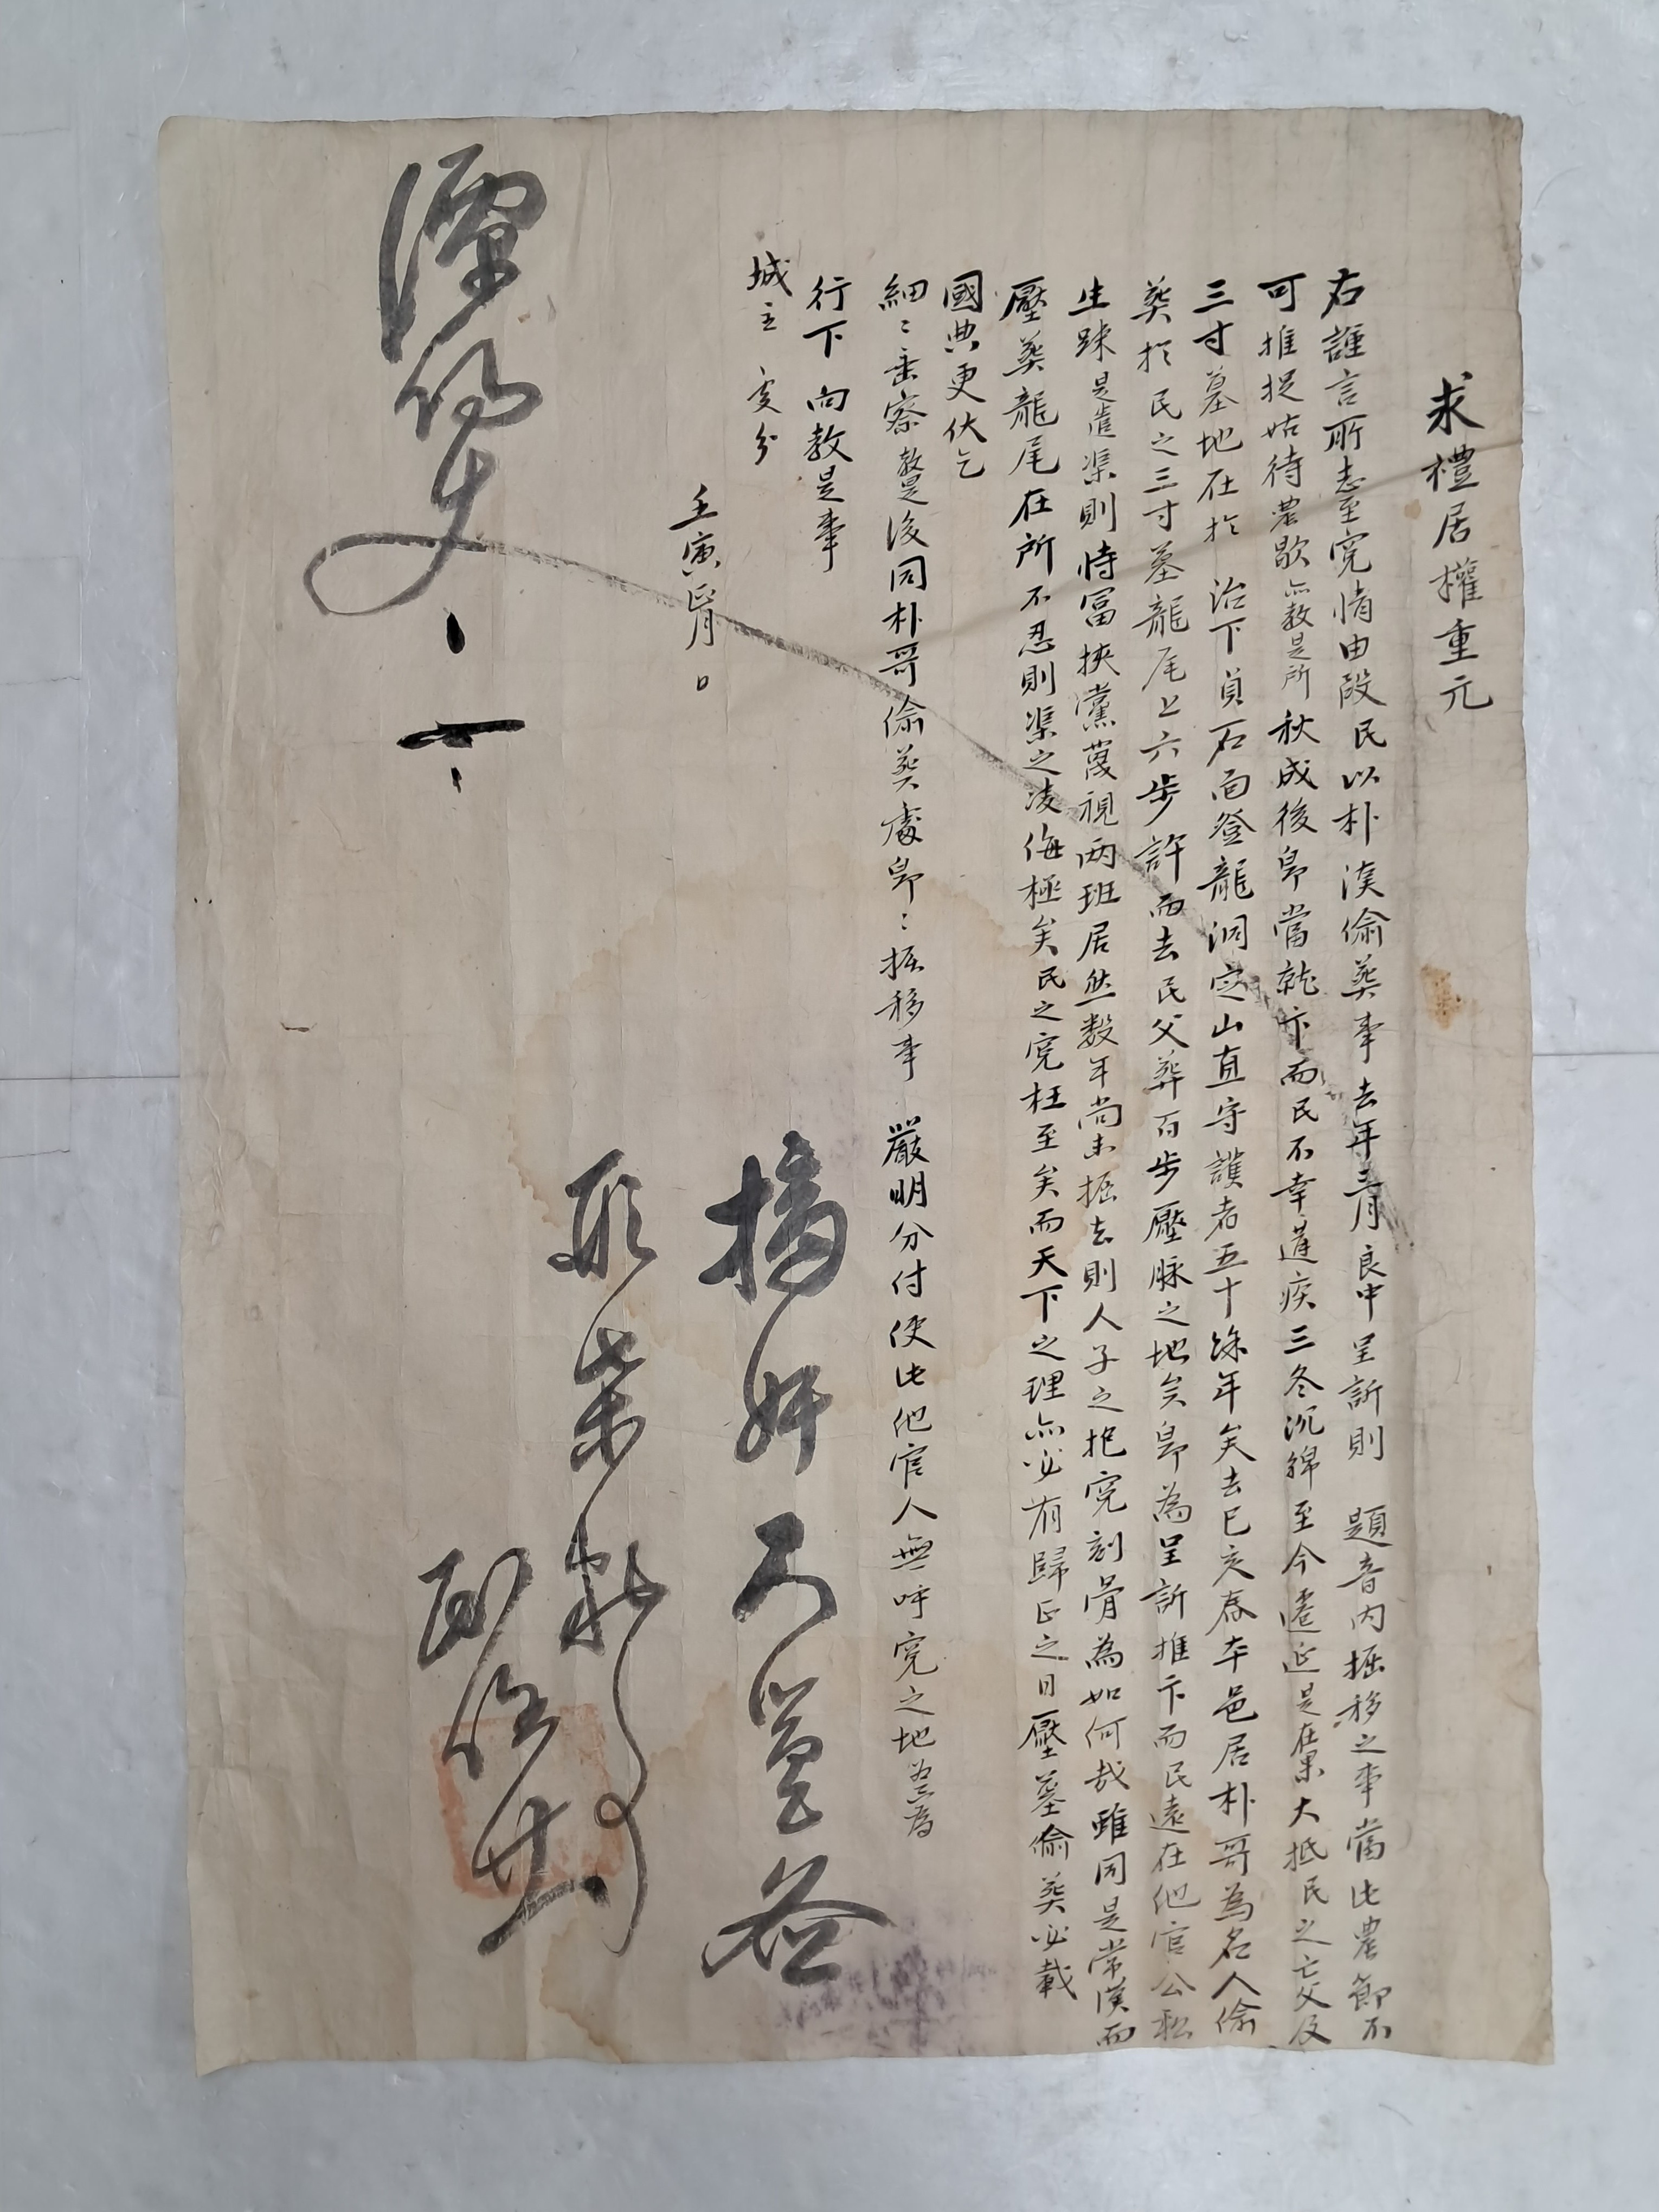 求禮居權重元
右謹言所志至寃情由段民以朴漢偸葬事去年三月良中呈訴則 題音內掘移之事當此農節不
可推捉姑待農歇亦敎是所秋成後卽當就卞而民不幸遘疾三冬沉綿至今遷延是在果大抵民之亡父及
三寸墓地在於 治下貟石面登龍洞定山直守護者五十餘年矣去己亥春本邑居朴哥爲名人偸
葬於民之三寸墓龍尾上六步許而去民父葬百步壓脉之地矣卽爲呈訴推卞而民遠在他官公私
生踈是遣渠則恃冨挾黨蔑視兩班居然數年尙未掘去則人子之抱寃刻骨爲如何哉雖同是常漢而
壓葬龍尾在所不忍則渠之凌侮極矣民之寃枉至矣而天下之理亦必有歸正之日壓墓偸葬必載
國典更伏乞
細〻垂察敎是後同朴哥偸葬處卽〻掘移事 嚴明分付使此他官人無呼寃之地爲
行下向敎是事
城主 處分
壬寅正月 日
摘奸不
形止